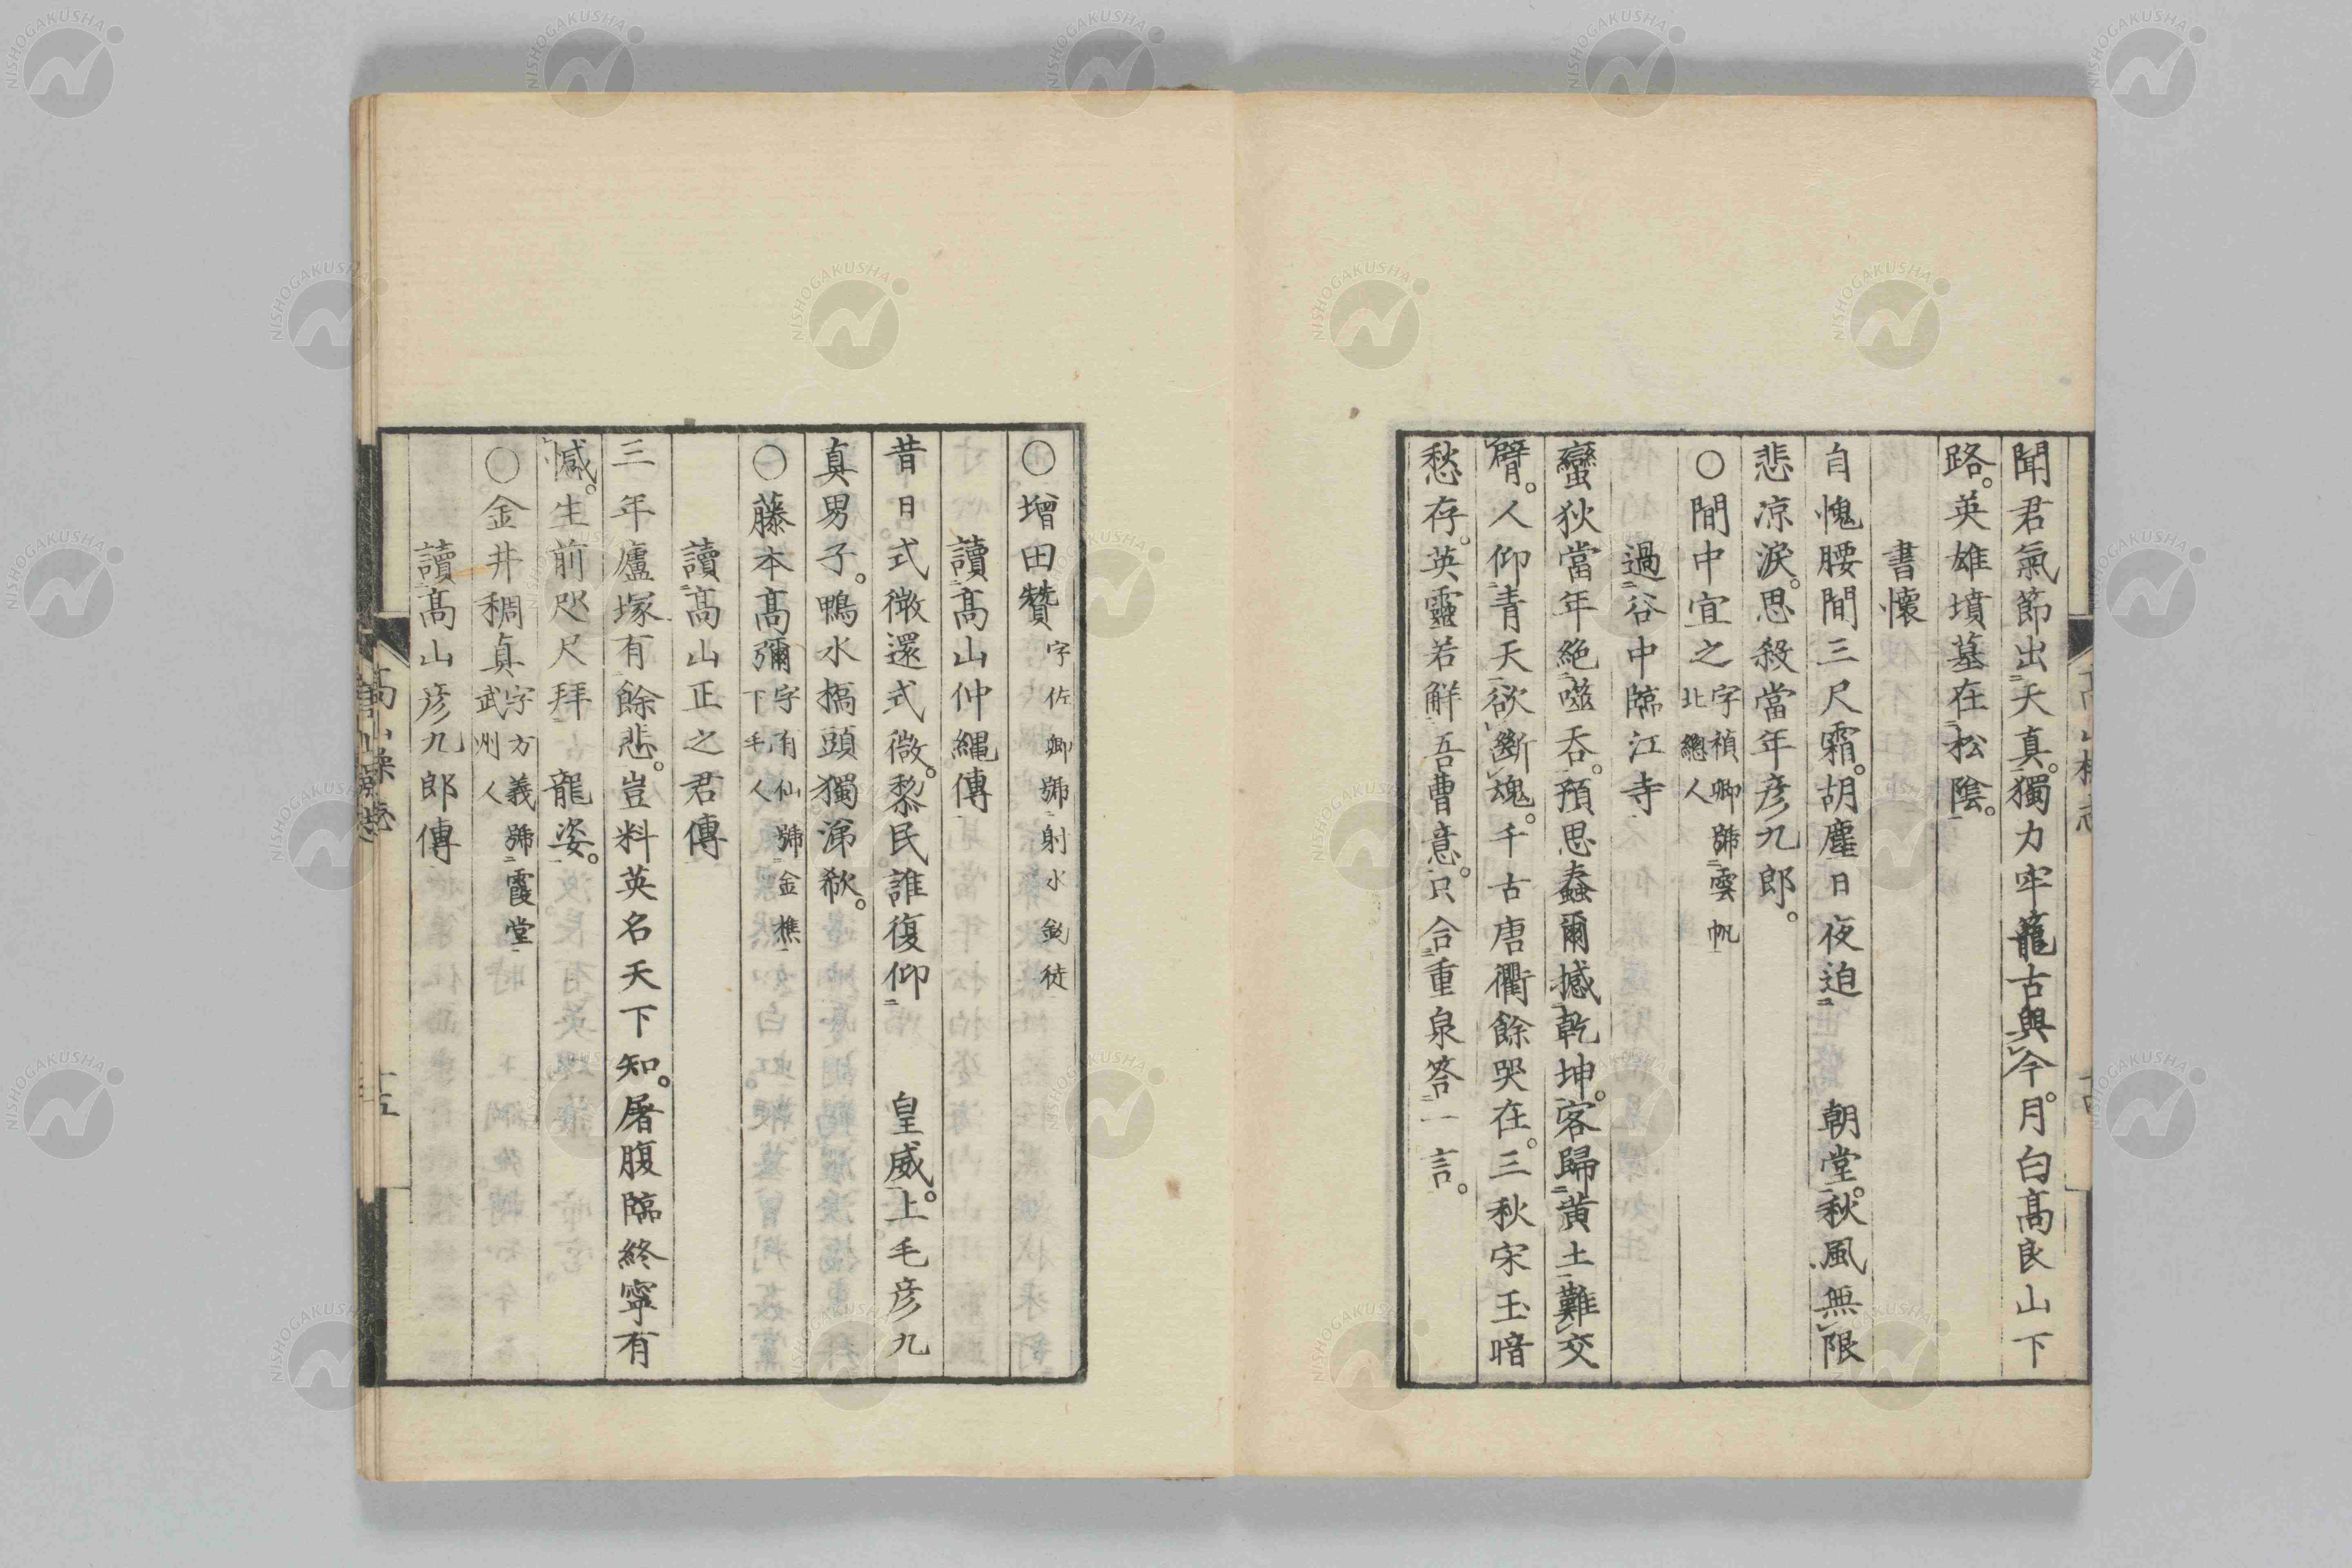 聞君氣節出天真。獨力牢籠古與今。月白高良山下
路。英雄墳墓在松陰。
書懷
自愧腰間三尺霜。胡塵日夜迫　朝堂。秋風無限
悲凉淚。思殺當年彦九郎。
○間中宜之 字禎卿號雲帆 北總人
過谷中臨江寺
蠻狄當年絶噬呑。預思蠢爾撼乾坤。客歸黄土難交
臂。人仰青天欲斷魂。千古唐衢餘哭在。三秋宋玉暗
愁存。英靈若解吾曹意。只合重泉答一言。
○增田贊 字佐卿號射水
讀高山仲縄傳
昔日式微還式微。黎民誰復仰　皇威。上毛彦九
真男子。鴨水橋頭獨涕欷。
○藤本高彌 字有仙號金樵 下毛人
讀高山正之君傳
三年廬塚有餘悲。豈料英名天下知。屠腹臨終寧有
憾。生前咫尺拜　龍姿。
○金井稠真 字方義號霞堂 武州人
讀高山彦九郎傳
十五
NISHOGAKUSHA